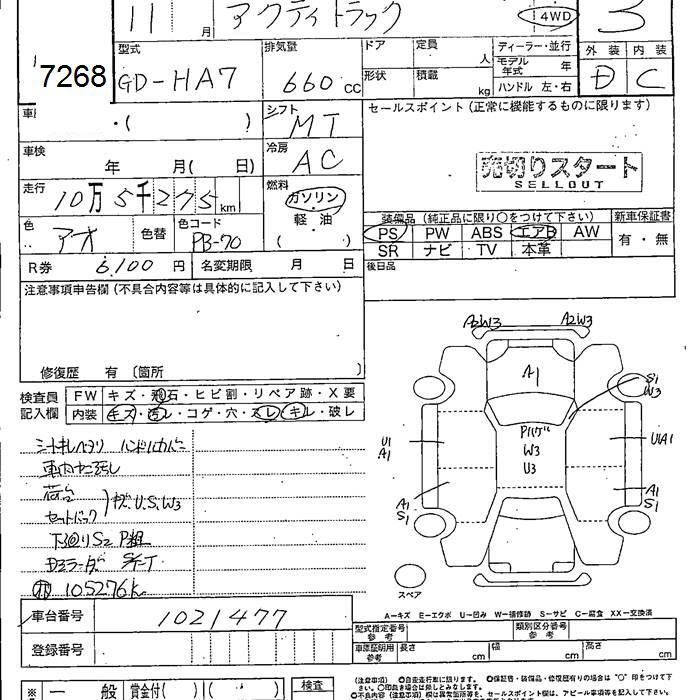 11 月 アクティトラック 4WD 3
7268
型式 GD-HA7
排気量 660 cc
ドア 定員 人
形状 積載 kg
ディーラー・並行
モデル年式 年
ハンドル 左・右
外装 内装
D C
・( )
シフト MT
セールスポイント(正常に機能するものに限ります)
車検 年 月( 日)
冷房 AC
売切りスタート
SELLOUT
走行 10万5千275km
燃料 ガソリン
軽・油
( )
色 アオ 色替 色コード PB-70
装備品(純正品に限り○をつけて下さい) 新車保証書
PS PW ABS エアB AW 有・無
SR ナビ TV 本革
R券 6,100円 名変期限 月 日
後日品
注意事項申告欄(不具合内容等は具体的に記入して下さい)
修復歴 有 〔箇所 〕
検査員記入欄
FW キズ・飛石・ヒビ割・リペア跡・X要
内装 キズ・汚レ・コゲ・穴・スレ・キレ・破レ
シートキレヘタリ ハンドルカバー
車内ヤニ汚レ
荷台
セートバック
キズ.U.S.W3
下廻りS2 P粗
105276K
A2W3 A2W3
A1
S1
W3
U1
A1
Pハゲ
W3
U3
U1A1
A1
S1
A1
S1
スペア
A−キズ E−エクボ U−凹み W−補修跡 S−サビ C−腐食 XX−交換済
車台番号 1021477
登録番号
型式指定番号 参考
類別区分番号 参考
車庫証明用 参考 長さ 幅 高さ
※ 一 般 賞金付( )( )
検査